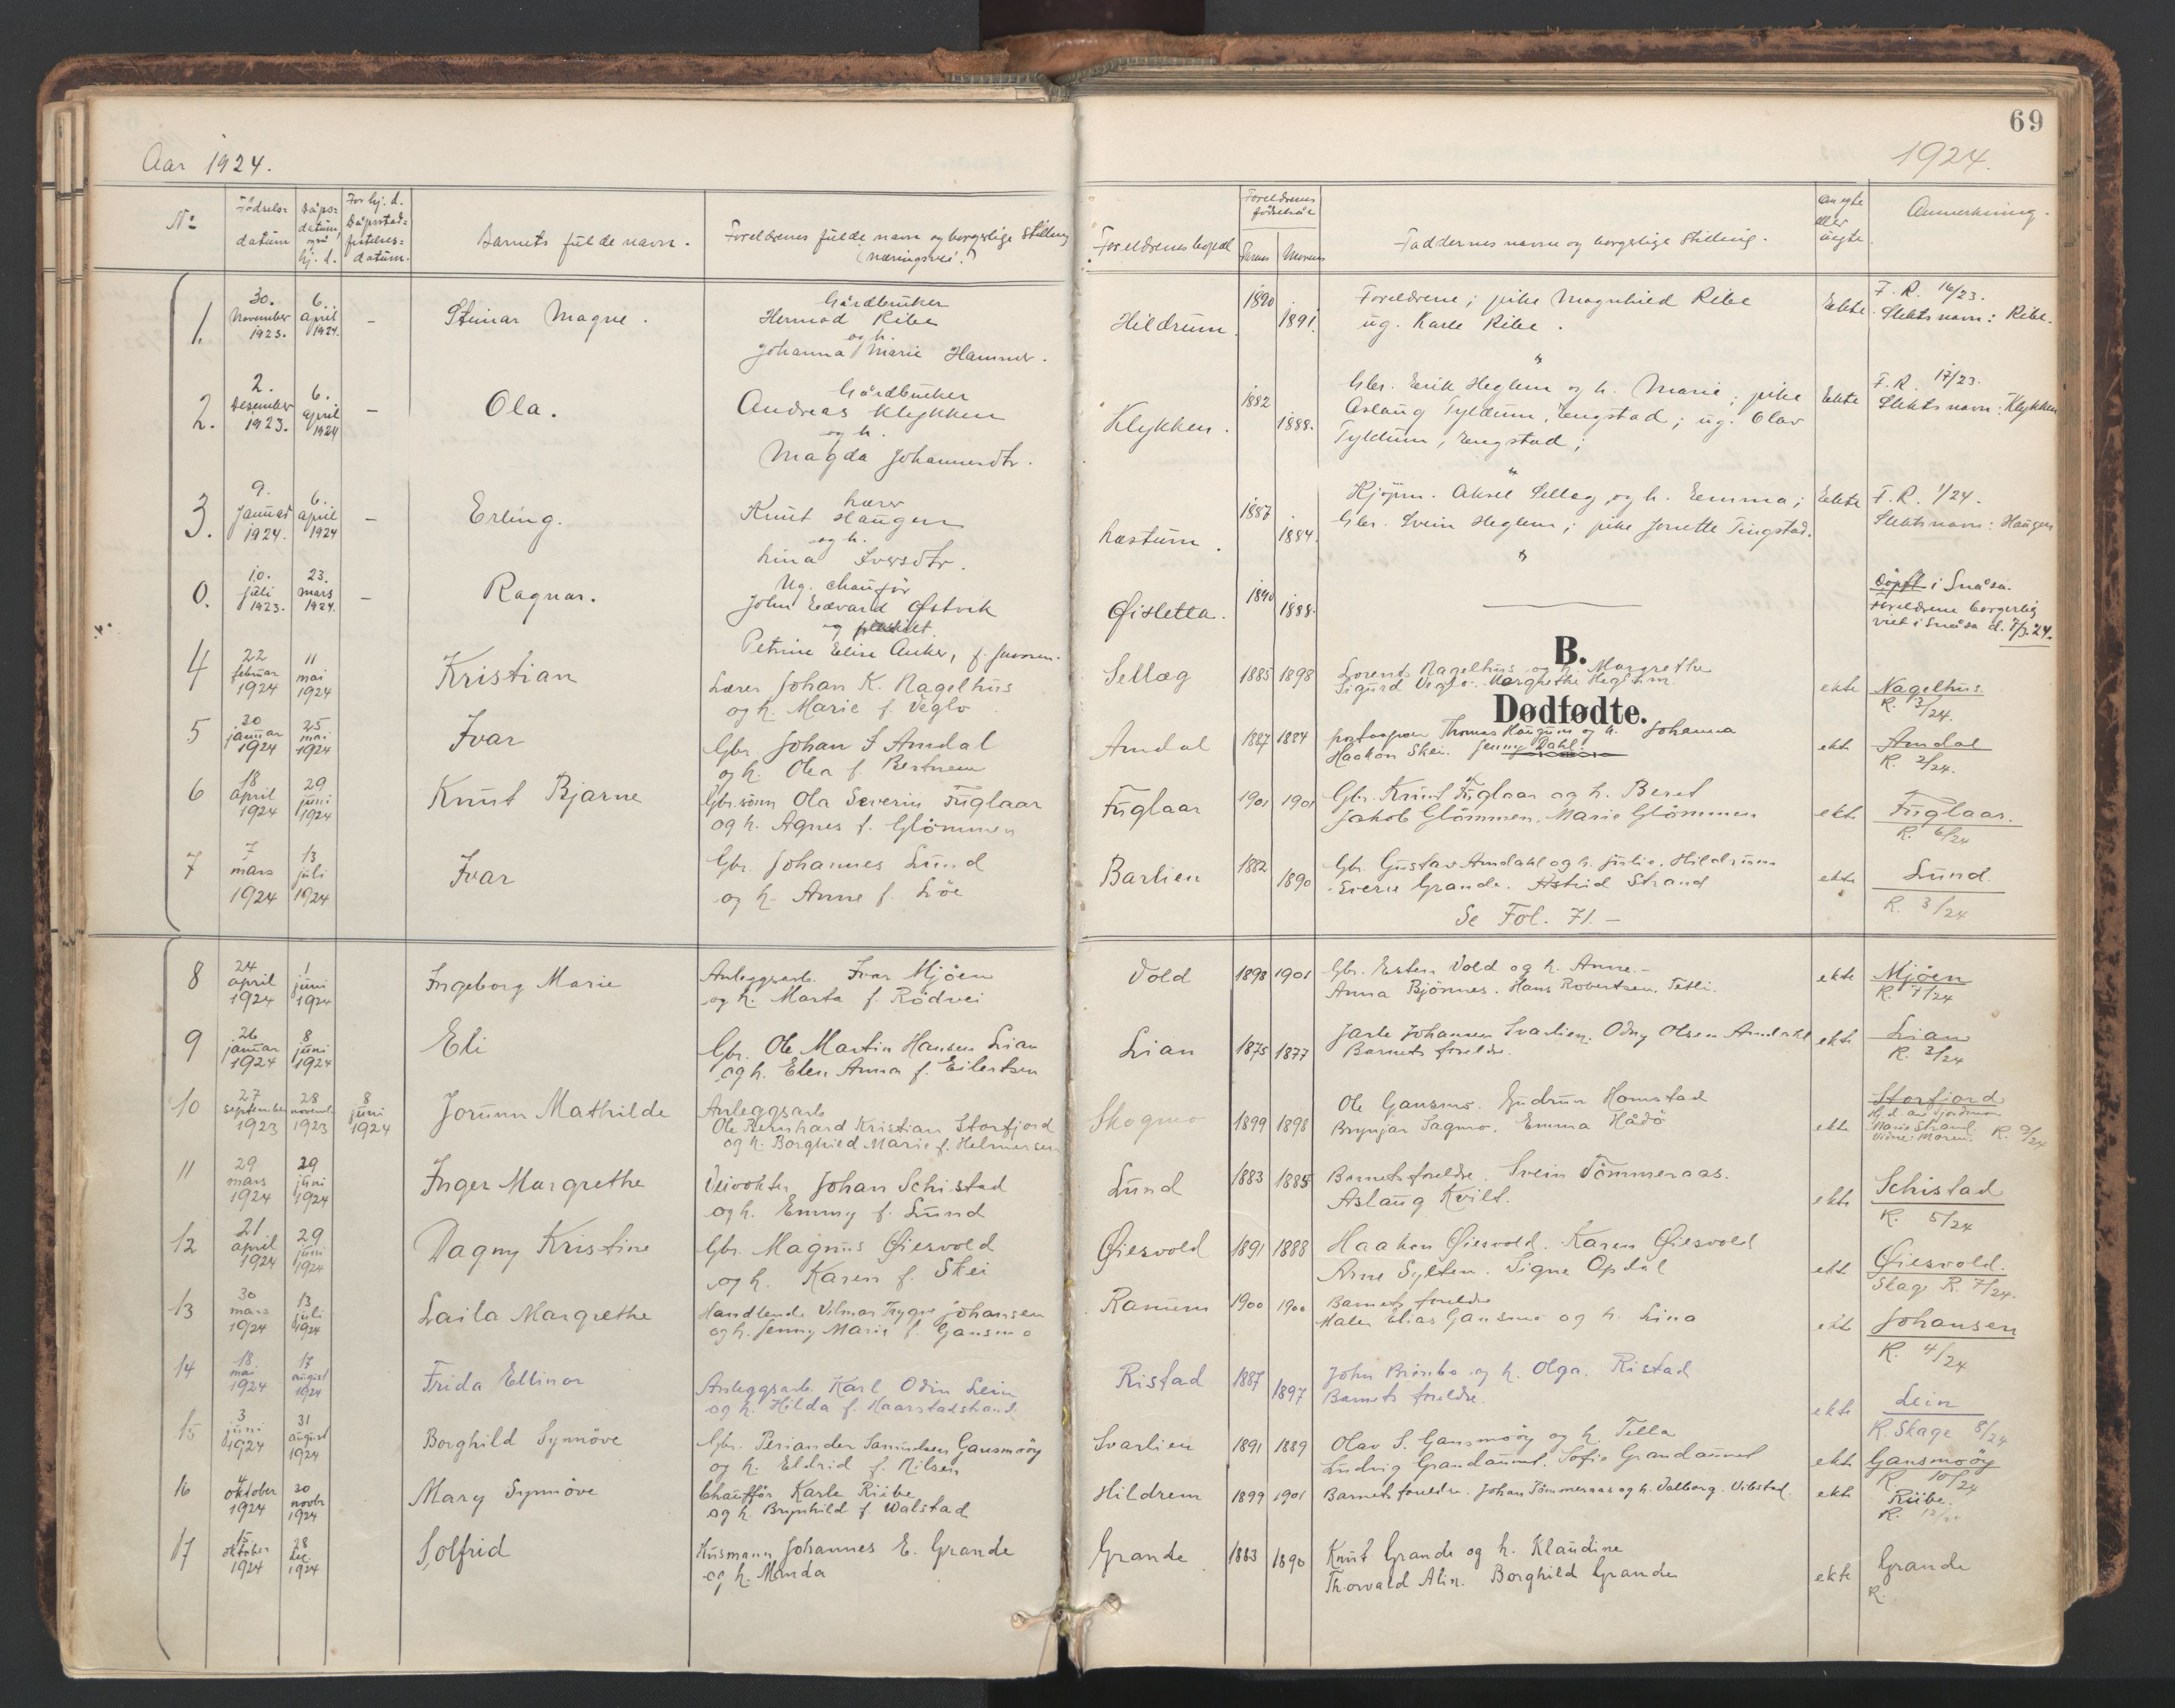 69
Aar 1924.
1924.
No
Fødsels-
datum
Dåps-
datum,
også
hj. d.
For hj. d.
Dåpsstad-
festelses-
datum.
Barnets fulde navn.
Foreldrenes fulde navn og borgerlige stilling
(næringsvei.)
Foreldrenes bopæl
Foreldrenes
fødselsår
Farens
Morens
Faddernes navne og borgerlige stilling.
Om egte
eller
uegte.
Anmerkning.
1.
30.
November
1923.
6.
april
1924.
–
Steinar Magne.
Gårdbruker
Hermod Ribe
og h.
Johanna Marie Hammer.
Hildrum.
1890
1891.
Foreldrene; pike Magnhild Ribe
ug. Karle Ribe.
Ekte.
F. R. 16/23.
Slektsnavn: Ribe.
2.
2.
Desember
1923.
6.
april
1924
–
Ola.
Gårdbruker
Andreas Klykken
og h.
Magda Johannesdtr.
Klykken.
1882
1888.
Gbr. Erik Heglem og h. Marie; pike
Aslaug Tyldum, Engstad; ug. Olav
Tyldum, Engstad;
Ekte
F. R. 17/23.
Slektsnavn: Klykken
3.
9.
Januar
1924.
6.
april
1924
–
Erling.
Lærer
Knut Haugen
og h.
Lina Iversdtr.
Læstum.
1887
1884.
Kjøpm. Aksel Sellæg og h. Emma;
Gbr. Svein Heglem; pike Jonette Tingstad.
Ekte
F. R. 1/24.
Slektsnavn: Haugen
0.
10.
juli
1923.
23.
mars
1924.
–
Ragnar.
Ug. chaufør
John Edvard Østvik
og
Petrine Elise Anker, f. Jensen.
Øisletta.
1890
1888.
Døpt i Snåsa.
Foreldrene borgerlig
viet i Snåsa d. 7/3.24.
B.
Dødfødte.
4
22
februar
1924
11
mai
1924
Kristian
Lærer Johan K. Nagelhus
og h. Marie f. Veglo
Sellæg
1885 1898
Lorents Nagelhus og h. Margrethe
Sigurd Veglo. Margrethe Hegstum.
ekte
Nagelhus
R. 3/24.
5
30
januar
1924
25
mai
1924
Ivar
Gbr. Johan J Amdal
og h. Olea f. Bertnem
Amdal
1887 1884
Thomas Haugum og h. Johanna
Haakon Skei. Jenny Dahl.
ekte
Amdal
R. 2/24.
6
18
april
1924
29
juni
1924
Knut Bjarne
Gbr.sønn Ola Severin Fuglaar
og h. Agnes f. Glömmen
Fuglaar
1901 1901
Gbr. Knut Fuglaar og h. Beret
Jakob Glömmen, Marie Glömmen
ekte
Fuglaar.
R. 6/24
7
7
mars
1924
13
juli
1924
Ivar
Gbr. Johannes Lund
og h. Anne f. Löe
Barlien
1882
1890
Gbr. Gustav Amdahl og h. Julie, Hildrum
Sverre Grande. Astrid Strand
Se Fol. 71. –
ekte
Lund.
R. 3/24
8
24
april
1924
1
juni
1924
Ingeborg Marie
Anleggsarb. Ivar Mjöen
og h. Marta f. Rödvei
Vold
1898 1901
Gbr. Esten Vold og h. Anne.-
Anna Bjönnes. Hans Robertsen, Tetli.
ekte
Mjöen
R. 7/24
9
26
januar
1924
8
juni
1924
Eli
Gbr. Ole Martin Hansen Lian
og h. Elen Anna f. Eilertsen
Lian
1875 1877
Jarle Johansen Svarlien. Odny Olsen Amdahl
Barnets foreldre.
ekte
Lian
R. 2/24
10
27
september
1923
28
novemb.
1923
8
juni
1924
Jorunn Mathilde
Anleggsarb.
Ole Bernhard Kristian Storfjord
og h. Borghild Marie f. Helmersen
Skogmo
1899 1898
Ole Gansmo. Gudrun Homstad
Brynjar Sagmo. Emma Hådö
ekte
Storfjord
Hj.d. av jordmor
Marie Strand.
Vidne: Moren. R. 9/24
11
29
mars
1924
29
juni
1924
Inger Margrethe
Veivokter Johan Schistad
og h. Emmy f. Lund
Lund
1883 1885
Barnets foreldre. Svein Tömmeraas.
Aslaug Kvilt.
ekte
Schistad
R. 5/24
12
21
april
1924
29
juni
1924
Dagny Kristine
Gbr. Magnus Øiesvold
og h. Karen f. Skei
Øiesvold
1891 1888
Haakon Øiesvold. Karen Øiesvold
Arne Sylten. Signe Opdal
ekte
Øiesvold.
Skage R. 7/24.
13
30
mars
1924
13
juli
1924
Laila Margrethe
Handlende Vilmar Trygve Johansen
og h. Jenny Marie f. Gansmo
Ranum
1900 1900
Barnets foreldre
Maler Elias Gansmo og h. Lina
ekte
Johansen
R. 4/24
14
18
mai
1924
17
august
1924
Frida Ellinor
Anleggsarb. Karl Odin Lein
og h. Hilda f. Haarstadstrand
Ristad
1887
1897
John Brembo og h. Olga. Ristad
Barnets foreldre.
ekte
Lein
R. Skage 8/24
15
3
juni
1924
31
august
1924
Borghild Synnöve
Gbr. Periander Samuelsen Gansmoöy
og h. Eldrid f. Nilsen
Svarlien
1891 1889
Olav S. Gansmoöy og h. Tella
Ludvig Grandaunet. Sofie Grandaunet
ekte
Gansmoöy
R. 10/24
16
4
oktober
1924
30
novbr
1924
Mary Synnöve
Chauffør Karle Riibe
og h. Brynhild f. Walstad
Hildrem
1899 1901
Barnets foreldre. Johan Tömmeraas og h. Valborg. Vibstad.
ekte
Riibe.
R.
17
15
oktober
1924
28
dec.
1924
Solfrid
Husmann Johannes E. Grande
og h. Minda
Grande
1883 1890
Knut Grande og h. Klaudine
Thorvald Alin. Borghild Grande
ekte
Grande
R.